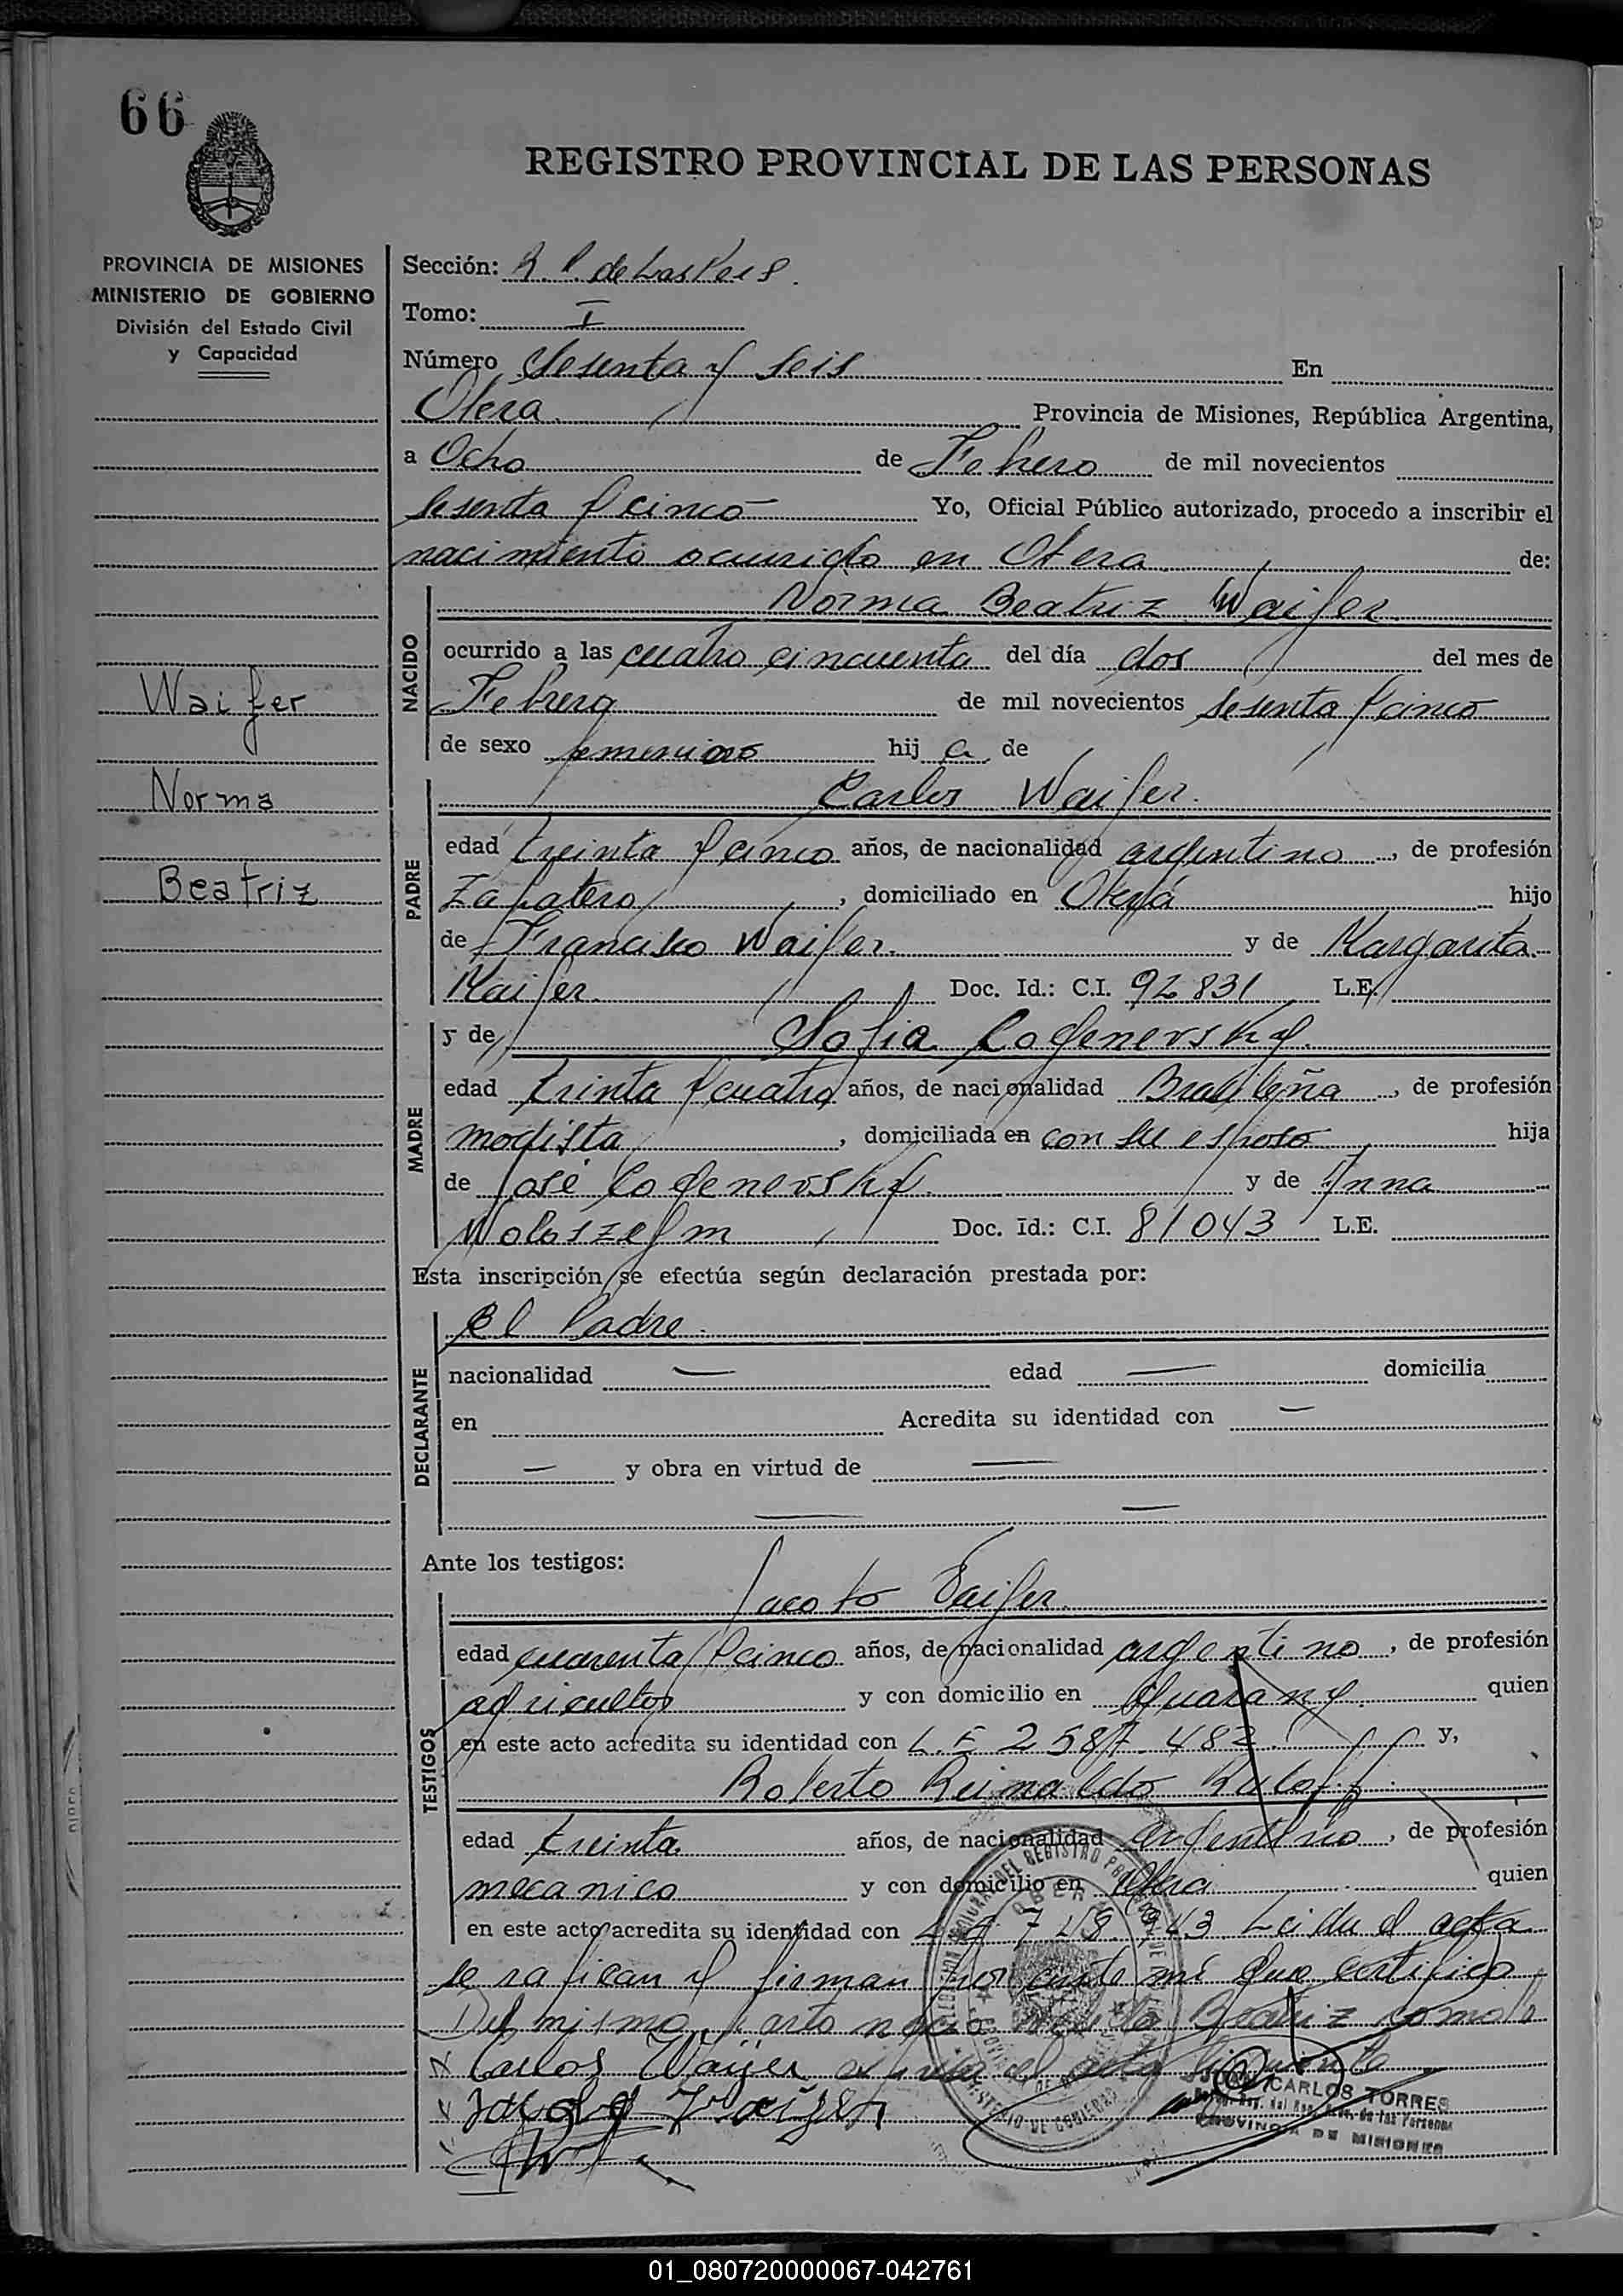 66
REGISTRO PROVINCIAL DE LAS PERSONAS
PROVINCIA DE MISIONES
MINISTERIO DE GOBIERNO
División del Estado Civil
y Capacidad
Waifer
Norma
Beatriz
Sección: R. P. de Las Pers.
Tomo: I
Número Sesenta y Seis En
Oberá Provincia de Misiones, República Argentina,
a Ocho de Febrero de mil novecientos
Sesenta y cinco Yo, Oficial Público autorizado, procedo a inscribir el
nacimiento ocurrido en Oberá de:
NACIDO
Norma Beatriz Waifer
ocurrido a las cuatro cincuenta del día dos del mes de
Febrero de mil novecientos Sesenta y cinco
de sexo femenino hij a de
PADRE
Carlos Waifer.
edad treinta y cinco años, de nacionalidad argentino, de profesión
Zapatero, domiciliado en Oberá hijo
de Francisco Waifer. y de Margarita
Kaifer. Doc. Id.: C.I. 92831 L.E.
MADRE
y de Sofia Cogenevsky.
edad trinta y cuatro años, de nacionalidad Brasileña, de profesión
modista, domiciliada en con su esposo hija
de José Cogenevsky. y de Anna
Woloszeym Doc. Id.: C.I. 81043 L.E.
Esta inscripción se efectúa según declaración prestada por:
DECLARANTE
El Padre.
nacionalidad — edad — domicilia
en Acredita su identidad con —
— y obra en virtud de —
— —
Ante los testigos:
TESTIGOS
Jacobo Faifer
edad cuarenta y cinco años, de nacionalidad argentino, de profesión
agricultor y con domicilio en Guarany. quien
en este acto acredita su identidad con L. E 2.587.482. y,
Roberto Reinaldo
edad treinta años, de nacionalidad argentino, de profesión
mecanico y con domicilio en Oberá quien
en este acto acredita su identidad con 943 Leida el acta
se rafican y firman por ante mi que certifico
Del mismo parto nació Beatriz como lo
Carlos Waifer el acta siguiente
JUAN CARLOS TORRES
PROVINCIA DE MISIONES
01_080720000067-042761